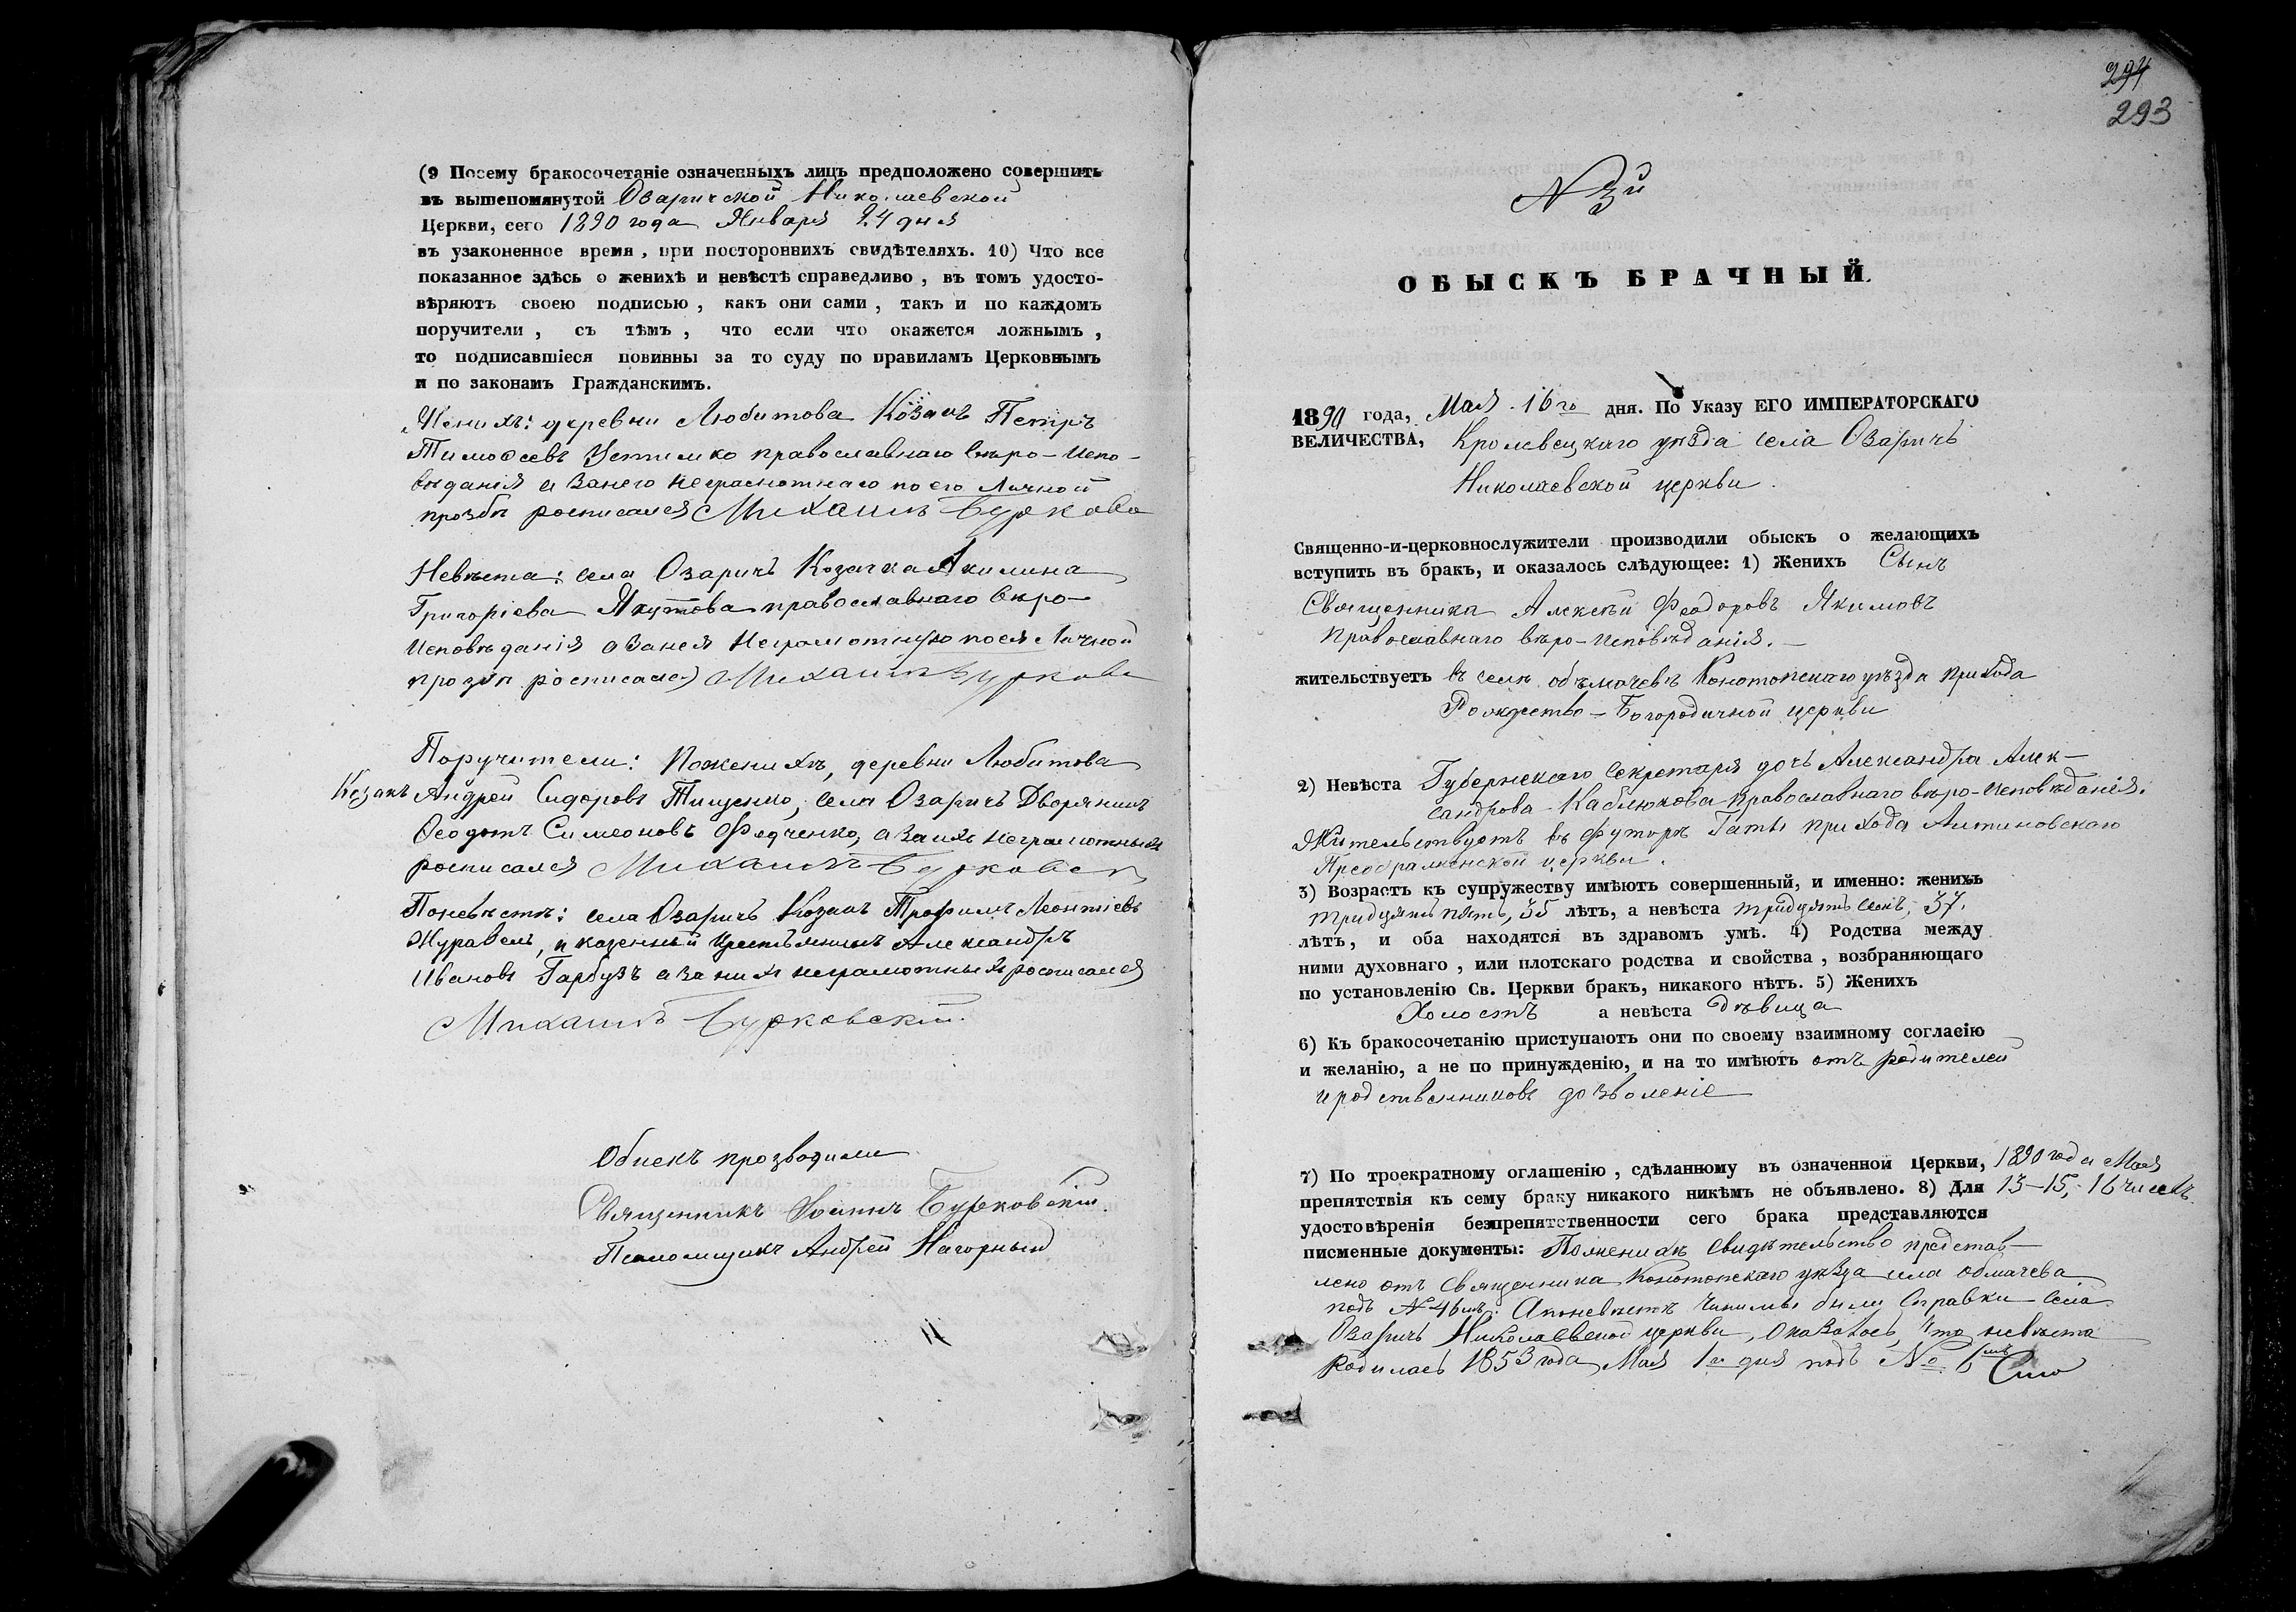 (9 Посему бракосочетаніе означенныхъ лицъ предположено совершить
въ вышепомянутой Озаричской Николаевской
Церкви, сего 1890 года Января 24 дня
въ узаконенное время, при постороннихъ свидѣтеляхъ. 10) Что все
показанное здѣсь о женихѣ и невѣстѣ справедливо, въ томъ удосто-
вѣряютъ своею подписью, какъ они сами, такъ и по каждомъ
поручители, съ тѣмъ, что если что окажется ложнымъ,
то подписавшіеся повинны за то суду по правиламъ Церковнымъ
и по законамъ Гражданскимъ.
Женихъ: деревни Любитова Козакъ Петръ
Тимоѳеевъ Устимко православнаго вѣро-испо-
вѣданія а занего неграмотнаго по его личной
прозбѣ росписался Михаилъ Бурковс
Невѣста: села Озаричъ Козачка Акилина
Григоріева Якутова православнаго вѣро-
исповѣданія а занея неграмотную поея личной
прозбѣ росписался Михаилъ Бурковс
Поручители: Поженихѣ, деревни Любитова
Козакъ Андрей Сидоровъ Тищенко, села Озаричъ Дворянинъ
Ѳеодотъ Симеоновъ Федченко, а заихъ неграмотныхъ
росписался Михаилъ Бурковс
Поневѣстѣ: села Озаричъ Козакъ Трофимъ Леонтіевъ
Журавель, и казенный крестьянинъ Александръ
Ивановъ Гарбузъ а за нихъ неграмотныхъ росписался
Михаилъ Бурковскій.
Обискъ прозводили
Священникъ Іоаннъ Бурковскій.
Псаломщикъ Андрей Нагорный
294
293
№ 3й
ОБЫСКЪ БРАЧНЫЙ.
1890 года, Мая 16го дня. По Указу ЕГО ИМПЕРАТОРСКАГО
ВЕЛИЧЕСТВА, Кролевецкаго уѣзда села Озаричъ
Николаевской церкви.
Священно-и-церковнослужители производили обыскъ о желающихъ
вступить въ бракъ, и оказалось слѣдующее: 1) Женихъ Сынъ
Священника Алексѣй Феодоровъ Якимовъ
православнаго вѣро-исповѣданія.
жительствуетъ въ селѣ объмочевѣ Конотопскаго уѣзда прихода
Рождество-Богородичной церкви
2) Невѣста Губернскаго секретаря дочь Александра Алек-
сандрова Каблюкова православнаго вѣро-исповѣданія.
Жительствуетъ въ футорѣ Гаты прихода Алтиновскаго
Преображенской церкви.
3) Возрастъ къ супружеству имѣютъ совершенный, и именно: женихъ
тридцять пять, 35 лѣтъ, а невѣста тридцять семъ, 37.
лѣтъ, и оба находятся въ здравомъ умѣ. 4) Родства между
ними духовнаго, или плотскаго родства и свойства, возбраняющаго
по установленію Св. Церкви бракъ, никакого нѣтъ. 5) Женихъ
Холостъ а невѣста Дѣвица
6) Къ бракосочетанію приступаютъ они по своему взаимному согласію
и желанію, а не по принужденію, и на то имѣютъ отъ родителей
и родственниковъ дозволеніе
7) По троекратному оглашенію, сдѣланному въ означенной Церкви, 1890 года Мая
препятствія къ сему браку никакого никѣмъ не объявлено. 8) Для 13-15, 16 чиселъ.
удостовѣренія безпрепятственности сего брака представляются
писменные документы: Поженихѣ свидѣтельство представ-
лено отъ священника Конотопскаго уѣзда села обмачева
подъ № 46мъ. Апоневѣстѣ чинимы были справки села
Озаричъ Николаевской церкви, оказалось, что невѣста
родилась 1853 года, Мая 1го дня подъ № 6мъ